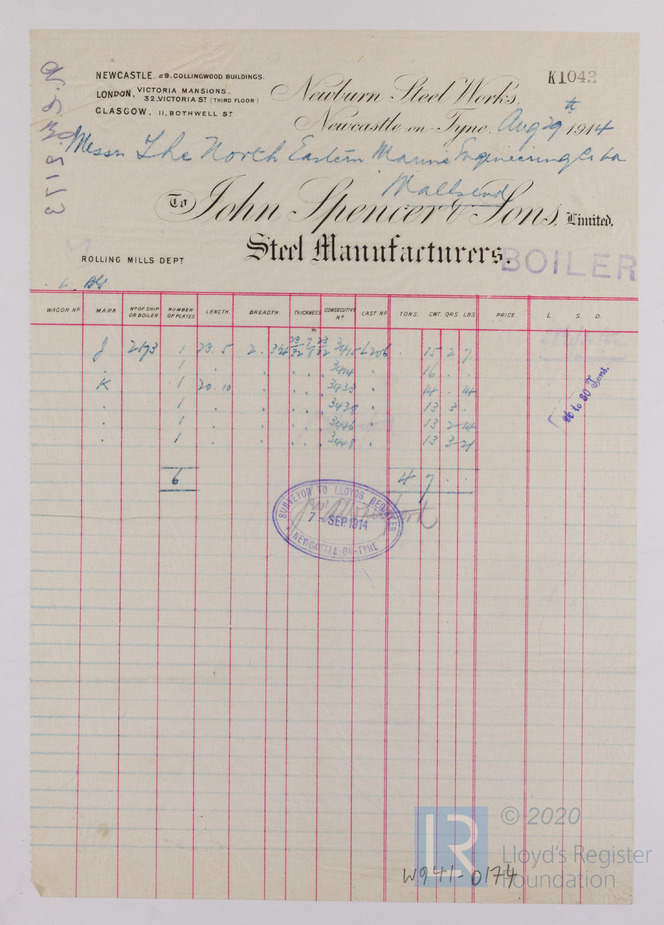 NEWCASTLE. 29. COLLINGWOOD BUILDINGS.
LONDON. VICTORIA MANSIONS.
32. VICTORIA ST (THIRD FLOOR)
GLASGOW. 11, BOTHWELL ST
K1042
Newburn Steel Works,
Newcastle on Tyne, Aug 29th 1914
Messrs The North Eastern Marine Engineering Co Ld
Wallsend
To John Spencer & Sons, Limited.
Steel Manufacturers.
ROLLING MILLS DEPT
BOILER
WAGON No MARK No OF SHIP OR BOILER NUMBER OF PLATES LENGTH. BREADTH. THICKNESS CONSECUTIVE No CAST No TONS. CWT. QRS. LBS PRICE. L. S. D.
J 2173 1 23.5 2. 3415 6206 . 15 2 7
. . 1 . . . 3414 . 16 . .
K . 1 20.10 . . 3438 . 14 . 14
. . 1 . . . 3439 . 13 3 .
. . 1 . . . 3446 . 13 2 14
. . 1 . . . 3448 . 13 3 21
6 4 7 . .
26 to 30 Tons.
SURVEYOR TO LLOYDS REGISTER
7 - SEP. 1914
NEWCASTLE-ON-TYNE
LR
© 2020
Lloyd's Register
Foundation
W941-0174